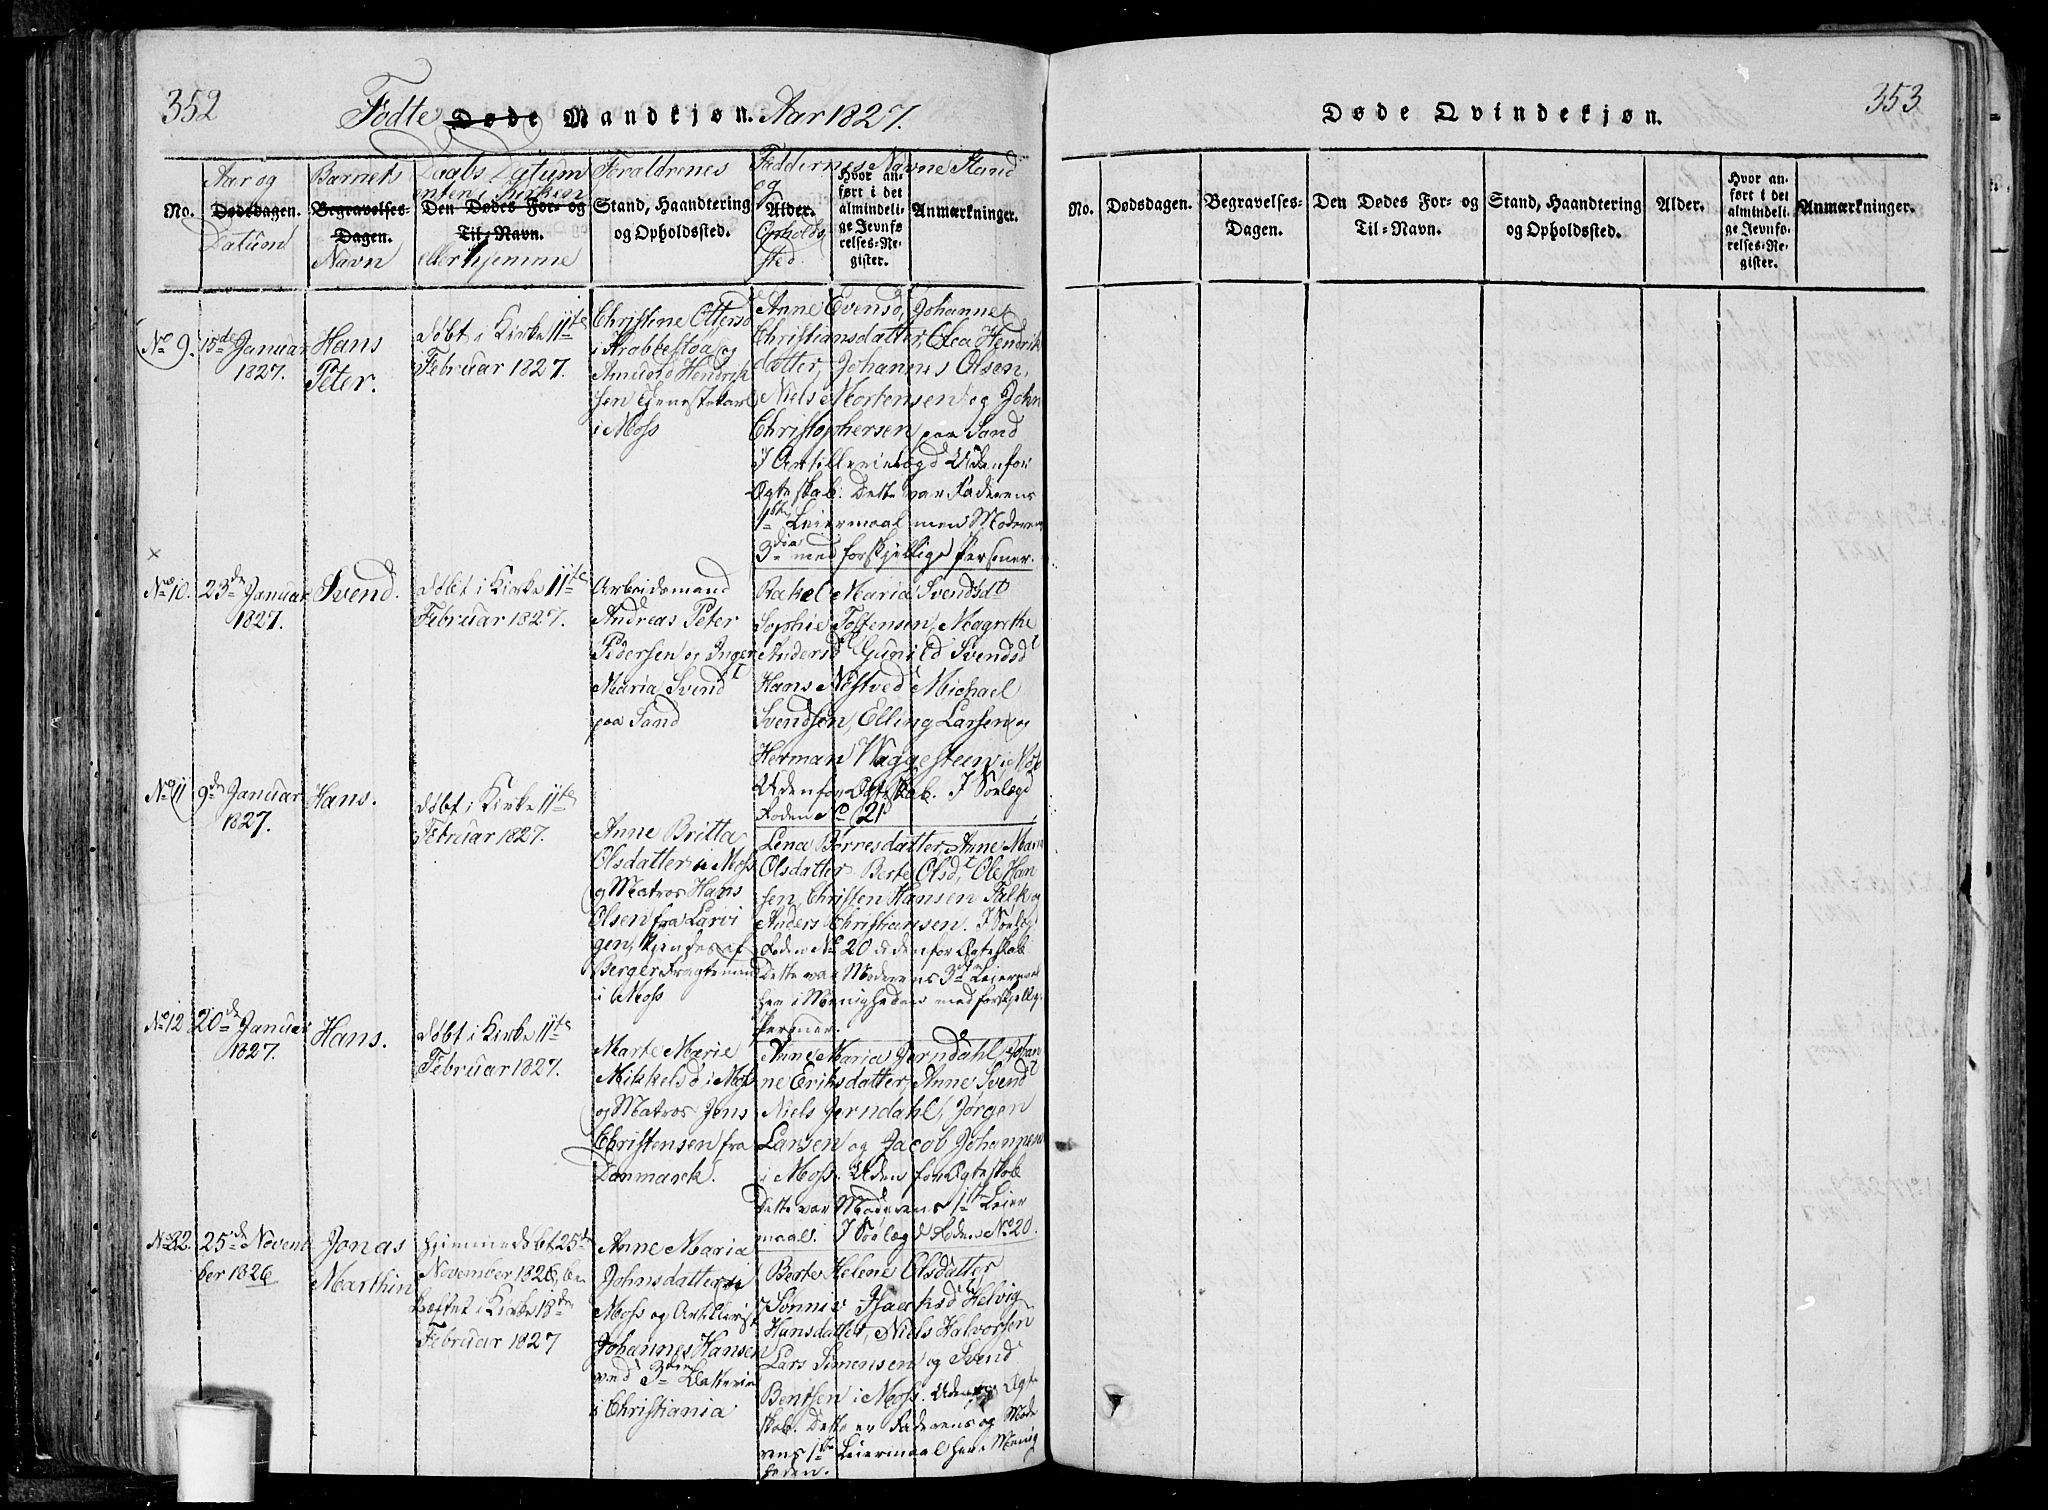 352
Fødte Døde Mandkjøn. Aar 1827.
No.
Aar og
Dødsdagen.
Datum
Barnets
Begravelses-
Dagen.
Navn
Daabs Datum
enten i Kirken
Den Dødes For- og
Til-Navn.
eller hjemme
Foraldrenes
Stand, Haandtering
og Opholdssted.
Faddernes Navne Stand
og
Alder.
Opholds
sted.
Hvor an-
ført i det
almindeli-
ge Jevnfø-
relses-Re-
gister.
Anmærkninger.
No 9.
15de Januar
1827.
Hans
Peter.
døbt i Kirke 11te
Februar 1827.
Christine Ottersd
i Krabbestoa og
Amund Hendrik
sen tjenestekarl
i Moss
Anne Evensd, Johanne
Christiansdatter, Olea Hendrik
datter, Johannes Olsen,
Niels Mortensen og John
Christophersen paa Sand
I Artillerielægd Udenfor
Ægteskab. Dette var Faderens
1ste Leiermaal men Moderens
3die med forskjellige Personer.
×
No 10.
23de Januar
1827.
Svend.
døbt i Kirke 11te
Februar 1827.
Arbeidsmand
Andreas Peter
Pedersen og Inger
Maria Svendt
paa Sand
Rakel Maria Svendsdt
Sophie Toftensen, Magrethe
Andersd Gunild Svendsdt
Hans Nestved Michael
Svendsen, Elling Larsen og
Herman Waggesteen i
Udenfor Ægteskab. I Søelægd
Roden No 21
No 11
9de Januar
1827.
Hans.
døbt i Kirke 11te
Februar 1827.
Anne Britta
Olsdatter i Moss
og Matros Hans
Olsen fra Larvi
gen, kjendes af
Berger Fragtemand
i Moss
Lena Børresdatter, Anne Maria
Olsdatter Berte Olsdt, Ole Han
sen, Christen Hansen Falk og
Anders Christiansen. I Søelægd
Roden No 20 Udenfor Ægteskab
Dette var Moderens 3die Leiermaal
her i Menigheden med forskjellige
Personer.
No 12
20de Januar
1827.
Hans.
døbt i Kirke 11te
Februar 1827.
Marte Marie
Mikkelsd i Moss
og Matros Jens
Christensen fra
Danmark.
Anne Maria Jerndahl, Johan
ne Eriksdatter, Anne Svendt
Niels Jerndahl, Jørgen
Larsen og Jacob Johannesen
i Moss. Udenfor Ægteskab
Dette var Moderens 1ste Leier
maal. I Søelægd Roden No 20.
No 32.
25de Novem
ber 1826
Jonas
Marthin
hjemmedøbt 25de
November 1826, be
kræftet i Kirke 18de
Februar 1827
Anne Maria
Johnsdatter i
Moss og Artillerist
Johannes Hansen
ved 3die Batterie
i Christiania
Berte Helene Olsdatter
Sønnev Isaeksd Helvig
Hansdatter, Niels Halvorsen
Lars Simensen og Svend
Bentsen i Moss. Udenfor Ægte
skab. Dette er Faderens og Mode
rens 1ste Leiermaal her i Menig
heden.
353
Døde Qvindekjøn.
No.
Dødsdagen.
Begravelses-
Dagen.
Den Dødes For- og
Til-Navn.
Stand, Haandtering
og Opholdssted.
Alder.
Hvor an-
ført i det
almindeli-
ge Jevnfø-
relses-Re-
gister.
Anmærkninger.